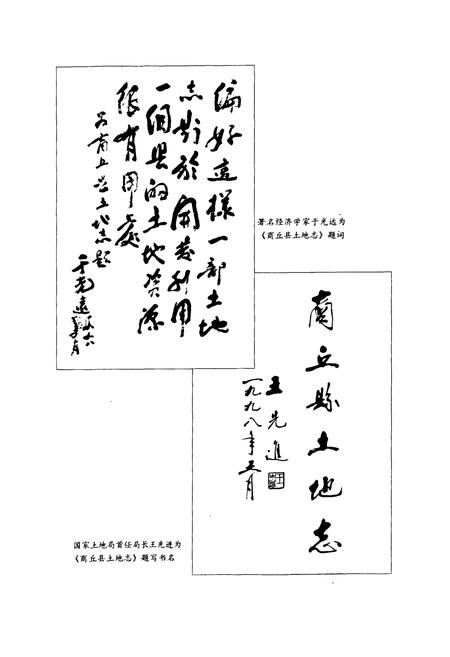 编好这样一部土地
志对於开发利用
一個县的土地资源
很有用處
为商丘县土地志题
于光遠
著名经济学家于光远为
《商丘县土地志》题词
商丘縣土地志
王先進
一九九八年五月
国家土地局首任局长王先进为
《商丘县土地志》题写书名